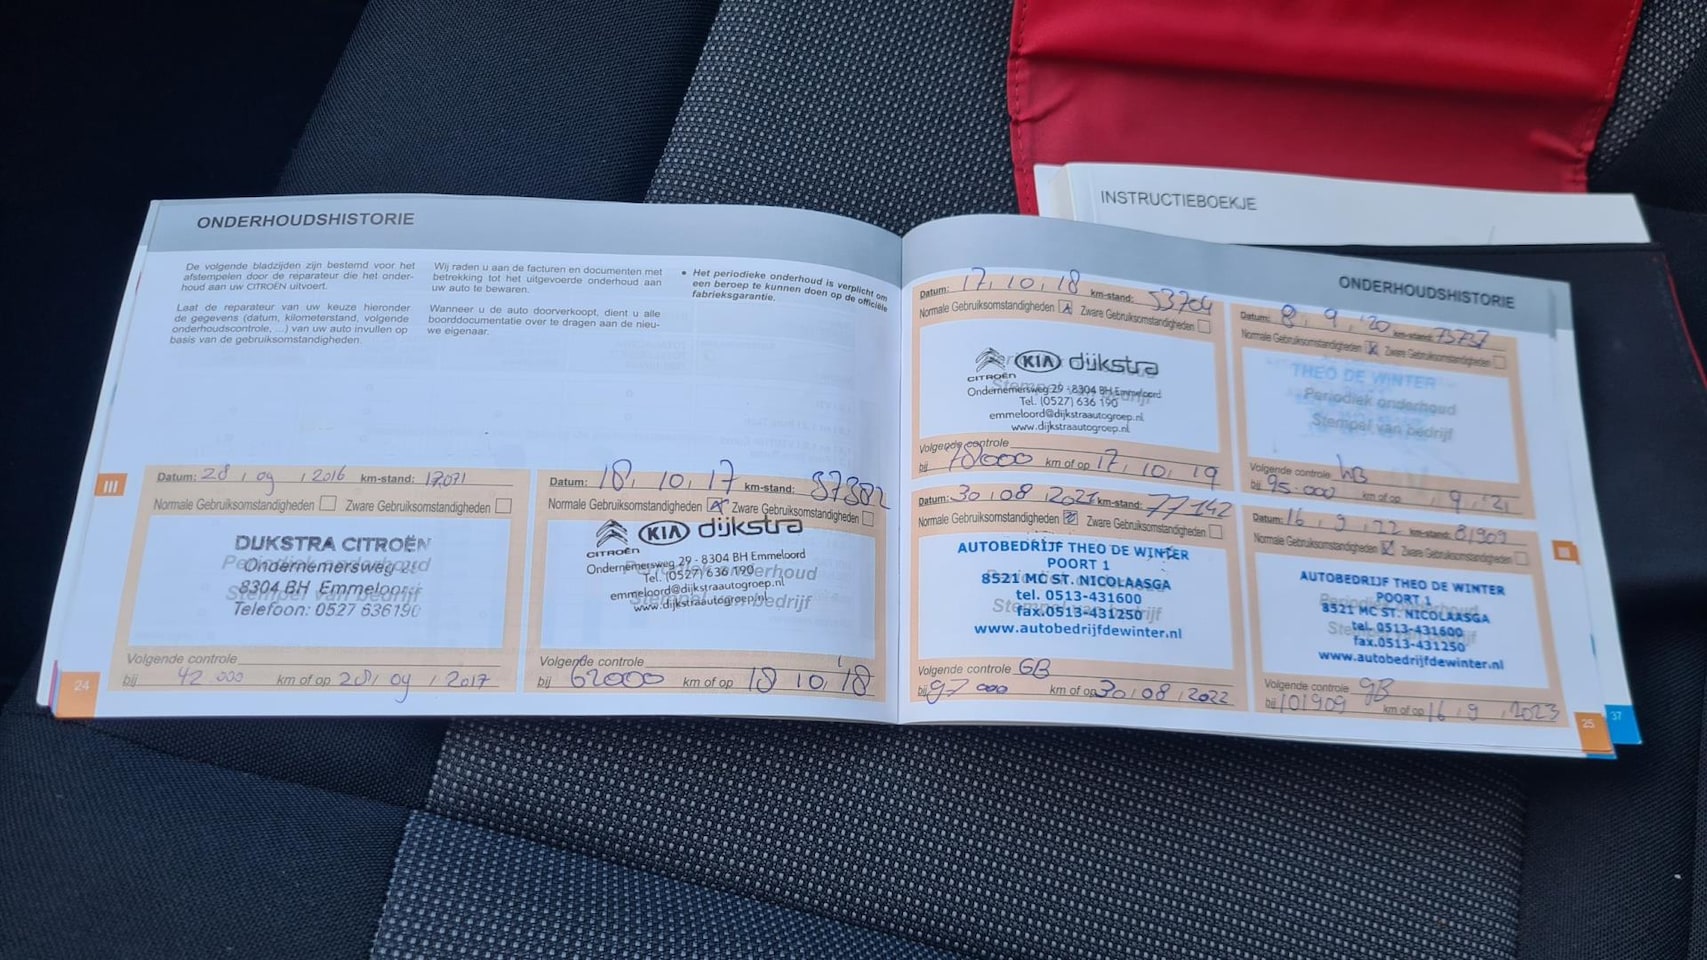 INSTRUCTIEBOEKJE
ONDERHOUDSHISTORIE
De volgende bladzijden zijn bestemd voor het
afstempelen door de reparateur die het onder-
houd aan uw CITROËN uitvoert.
Laat de reparateur van uw keuze hieronder
de gegevens (datum, kilometerstand, volgende
onderhoudscontrole, ...) van uw auto invullen op
basis van de gebruiksomstandigheden.
Wij raden u aan de facturen en documenten met
betrekking tot het uitgevoerde onderhoud aan
uw auto te bewaren.
Wanneer u de auto doorverkoopt, dient u alle
boorddocumentatie over te dragen aan de nieu-
we eigenaar.
• Het periodieke onderhoud is verplicht om
een beroep te kunnen doen op de officiële
fabrieksgarantie.
III
Datum: 28, 09, 2016 km-stand: 17.071
Normale Gebruiksomstandigheden Zware Gebruiksomstandigheden
DIJKSTRA CITROËN
Ondernemersweg
8304 BH Emmeloord
Telefoon: 0527 636190
Volgende controle
bij 42.000 km of op 28, 09, 2017
24
Datum: 18, 10, 17 km-stand: 37382
Normale Gebruiksomstandigheden Zware Gebruiksomstandigheden
CITROËN KIA dijkstra
Ondernemersweg 29 - 8304 BH Emmeloord
Tel. (0527) 636 190
emmeloord@dijkstraautogroep.nl
www.dijkstraautogroep.nl
Volgende controle
bij 62000 km of op 18 10, 18
ONDERHOUDSHISTORIE
Datum: 17, 10, 18 km-stand: 53704
Normale Gebruiksomstandigheden Zware Gebruiksomstandigheden
CITROËN KIA dijkstra
Ondernemersweg 29 - 8304 BH Emmeloord
Tel. (0527) 636 190
emmeloord@dijkstraautogroep.nl
www.dijkstraautogroep.nl
Volgende controle
bij 78000 km of op 17, 10, 19
Datum: 8, 9, '20 km-stand: 73737
Normale Gebruiksomstandigheden Zware Gebruiksomstandigheden
THEO DE WINTER
Periodiek onderhoud
Stempel van bedrijf
Volgende controle
bij 95.000 km of op , 9, '21
Datum: 30, 08, 2021 km-stand: 77142
Normale Gebruiksomstandigheden Zware Gebruiksomstandigheden
AUTOBEDRIJF THEO DE WINTER
POORT 1
8521 MC ST. NICOLAASGA
tel. 0513-431600
fax.0513-431250
www.autobedrijfdewinter.nl
Volgende controle GB
bij 97000 km of op 30, 08, 2022
Datum: 16, 9, 22 km-stand: 81909
Normale Gebruiksomstandigheden Zware Gebruiksomstandigheden
AUTOBEDRIJF THEO DE WINTER
POORT 1
8521 MC ST. NICOLAASGA
tel. 0513-431600
fax.0513-431250
www.autobedrijfdewinter.nl
Volgende controle GB
bij 101909 km of op 16, 9, 2023
III
25
37